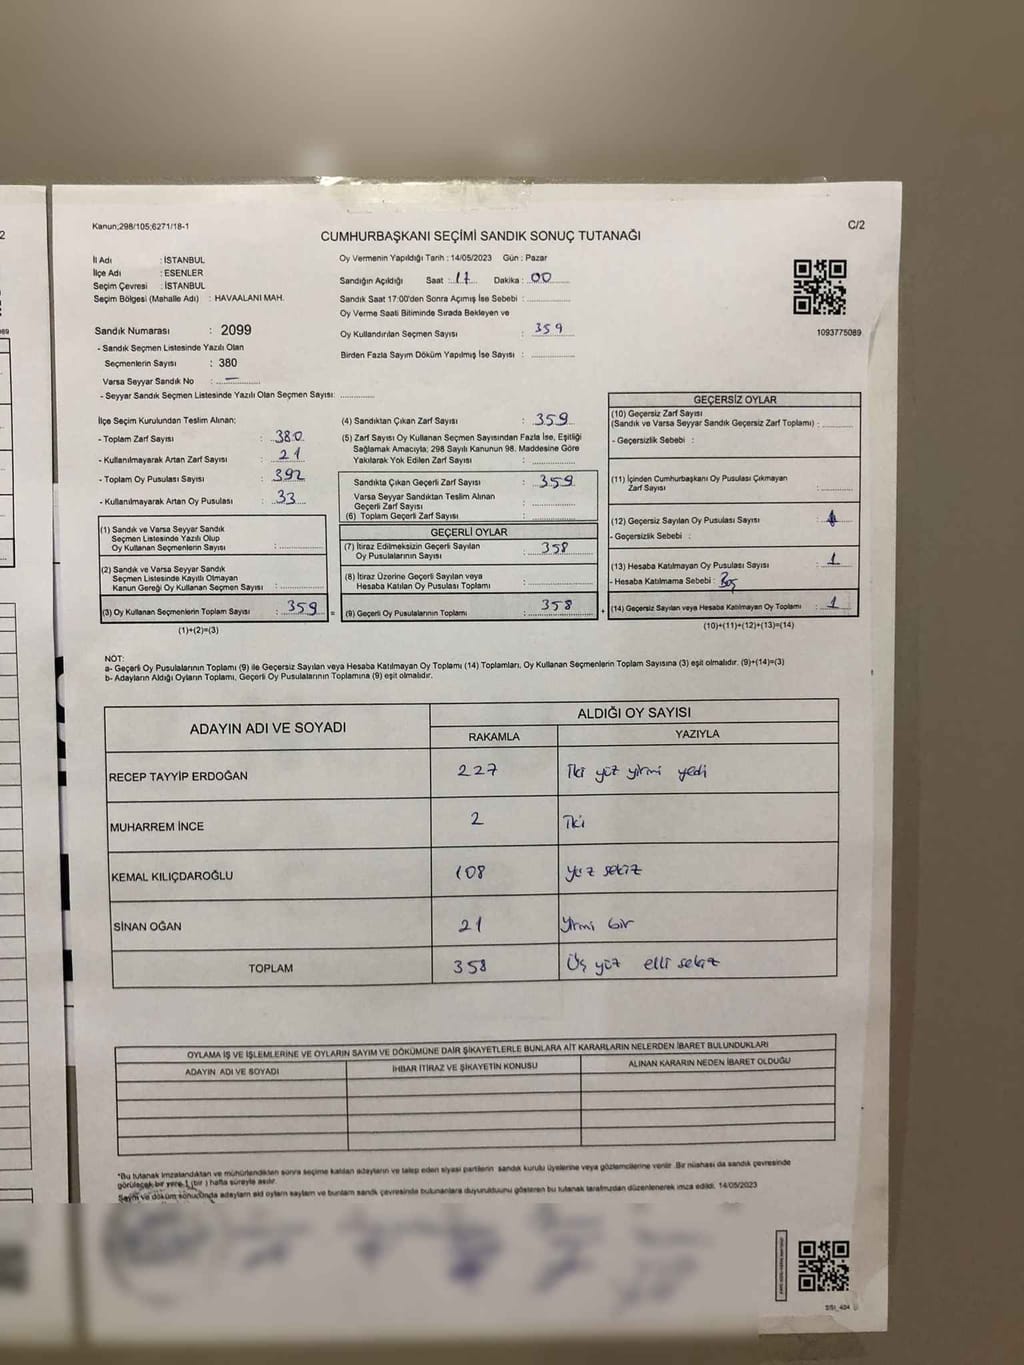 Kanun;298/105;6271/18-1
C/2
CUMHURBAŞKANI SEÇİMİ SANDIK SONUÇ TUTANAĞI
İl Adı : İSTANBUL
İlçe Adı : ESENLER
Seçim Çevresi : İSTANBUL
Seçim Bölgesi (Mahalle Adı) : HAVAALANI MAH.
Sandık Numarası : 2099
- Sandık Seçmen Listesinde Yazılı Olan
Seçmenlerin Sayısı : 380
Varsa Seyyar Sandık No : –
- Seyyar Sandık Seçmen Listesinde Yazılı Olan Seçmen Sayısı:
Oy Vermenin Yapıldığı Tarih : 14/05/2023 Gün : Pazar
Sandığın Açıldığı Saat : 17 Dakika : 00
Sandık Saat 17:00'den Sonra Açımış İse Sebebi :
Oy Verme Saati Bitiminde Sırada Bekleyen ve
Oy Kullandırılan Seçmen Sayısı : 359
Birden Fazla Sayım Döküm Yapılmış İse Sayısı :
1093775089
İlçe Seçim Kurulundan Teslim Alınan:
- Toplam Zarf Sayısı : 380
- Kullanılmayarak Artan Zarf Sayısı : 21
- Toplam Oy Pusulası Sayısı : 392
- Kullanılmayarak Artan Oy Pusulası : 33
(1) Sandık ve Varsa Seyyar Sandık
Seçmen Listesinde Yazılı Olup
Oy Kullanan Seçmenlerin Sayısı :
(2) Sandık ve Varsa Seyyar Sandık
Seçmen Listesinde Kayıtlı Olmayan
Kanun Gereği Oy Kullanan Seçmen Sayısı :
(3) Oy Kullanan Seçmenlerin Toplam Sayısı : 359
(1)+(2)=(3)
(4) Sandıktan Çıkan Zarf Sayısı : 359
(5) Zarf Sayısı Oy Kullanan Seçmen Sayısından Fazla İse, Eşitliği
Sağlamak Amacıyla; 298 Sayılı Kanunun 98. Maddesine Göre
Yakılarak Yok Edilen Zarf Sayısı :
Sandıkta Çıkan Geçerli Zarf Sayısı : 359
Varsa Seyyar Sandıktan Teslim Alınan
Geçerli Zarf Sayısı :
(6) Toplam Geçerli Zarf Sayısı :
GEÇERLİ OYLAR
(7) İtiraz Edilmeksizin Geçerli Sayılan
Oy Pusulalarının Sayısı : 358
(8) İtiraz Üzerine Geçerli Sayılan veya
Hesaba Katılan Oy Pusulası Toplamı :
= (9) Geçerli Oy Pusulalarının Toplamı : 358
GEÇERSİZ OYLAR
(10) Geçersiz Zarf Sayısı
(Sandık ve Varsa Seyyar Sandık Geçersiz Zarf Toplamı) :
- Geçersizlik Sebebi :
(11) İçinden Cumhurbaşkanı Oy Pusulası Çıkmayan
Zarf Sayısı :
(12) Geçersiz Sayılan Oy Pusulası Sayısı :
- Geçersizlik Sebebi :
(13) Hesaba Katılmayan Oy Pusulası Sayısı : 1
- Hesaba Katılmama Sebebi : Boş
+ (14) Geçersiz Sayılan veya Hesaba Katılmayan Oy Toplamı : 1
(10)+(11)+(12)+(13)=(14)
NOT:
a- Geçerli Oy Pusulalarının Toplamı (9) ile Geçersiz Sayılan veya Hesaba Katılmayan Oy Toplamı (14) Toplamları, Oy Kullanan Seçmenlerin Toplam Sayısına (3) eşit olmalıdır. (9)+(14)=(3)
b- Adayların Aldığı Oyların Toplamı, Geçerli Oy Pusulalarının Toplamına (9) eşit olmalıdır.
ADAYIN ADI VE SOYADI
ALDIĞI OY SAYISI
RAKAMLA YAZIYLA
RECEP TAYYİP ERDOĞAN 227 İki yüz yirmi yedi
MUHARREM İNCE 2 İki
KEMAL KILIÇDAROĞLU 108 yüz sekiz
SİNAN OĞAN 21 Yirmi bir
TOPLAM 358 Üç yüz elli sekiz
OYLAMA İŞ VE İŞLEMLERİNE VE OYLARIN SAYIM VE DÖKÜMÜNE DAİR ŞİKAYETLERLE BUNLARA AİT KARARLARIN NELERDEN İBARET BULUNDUKLARI
ADAYIN ADI VE SOYADI İHBAR İTİRAZ VE ŞİKAYETİN KONUSU ALINAN KARARIN NEDEN İBARET OLDUĞU
*Bu tutanak imzalandıktan ve mühürlendikten sonra seçime katılan adayların ve talep eden siyasi partilerin sandık kurulu üyelerine veya gözlemcilerine verilir. Bir nüshası da sandık çevresinde
görülecek bir yere 1 (bir) hafta süreyle asılır.
Sayım ve döküm sonucunda adayların ald oyların sayılarını ve bunların sandık çevresinde bulunanlara duyurulduğunu gösteren bu tutanak tarafımızdan düzenlenerek imza edildi. 14/05/2023